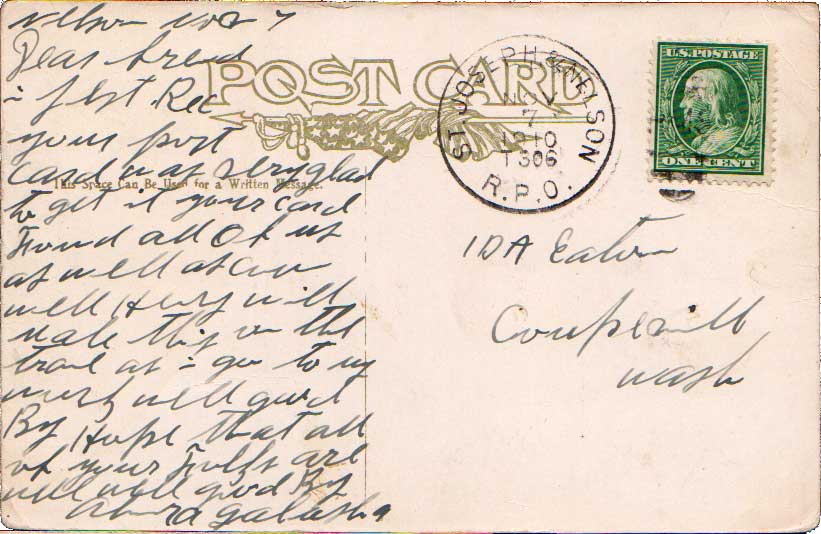 Nelson nov 7
Dear frend
i Jest Rec
your post
card was very glad
to get it your card
Found all of us
as well as can
well Henry will
male this on the
trane as i go to my
work well good
By Hope that all
of your Folks are
well well good By
POST CARD
This Space Can Be Used for a Written Message.
ST. JOSEPH & NELSON
NOV
7
1910
T 306
R.P.O.
U.S. POSTAGE
ONE CENT
IDA Eaton
Coupevill
wash